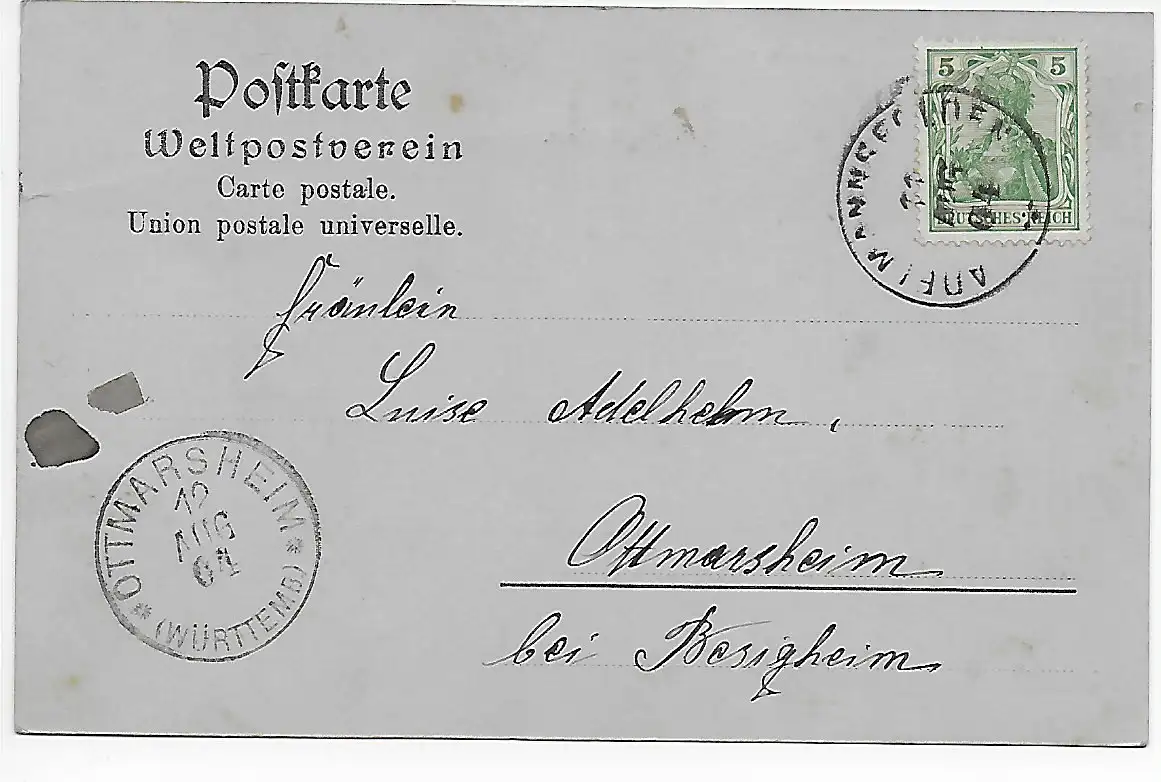 Postkarte
Weltpostverein
Carte postale.
Union postale universelle.
5 5
DEUTSCHES REICH
11
AUG
04
Fräulein
Luise Adelhelm,
Ottmarsheim
bei Besigheim
OTTMARSHEIM
12
AUG
04
(WÜRTTEMB)